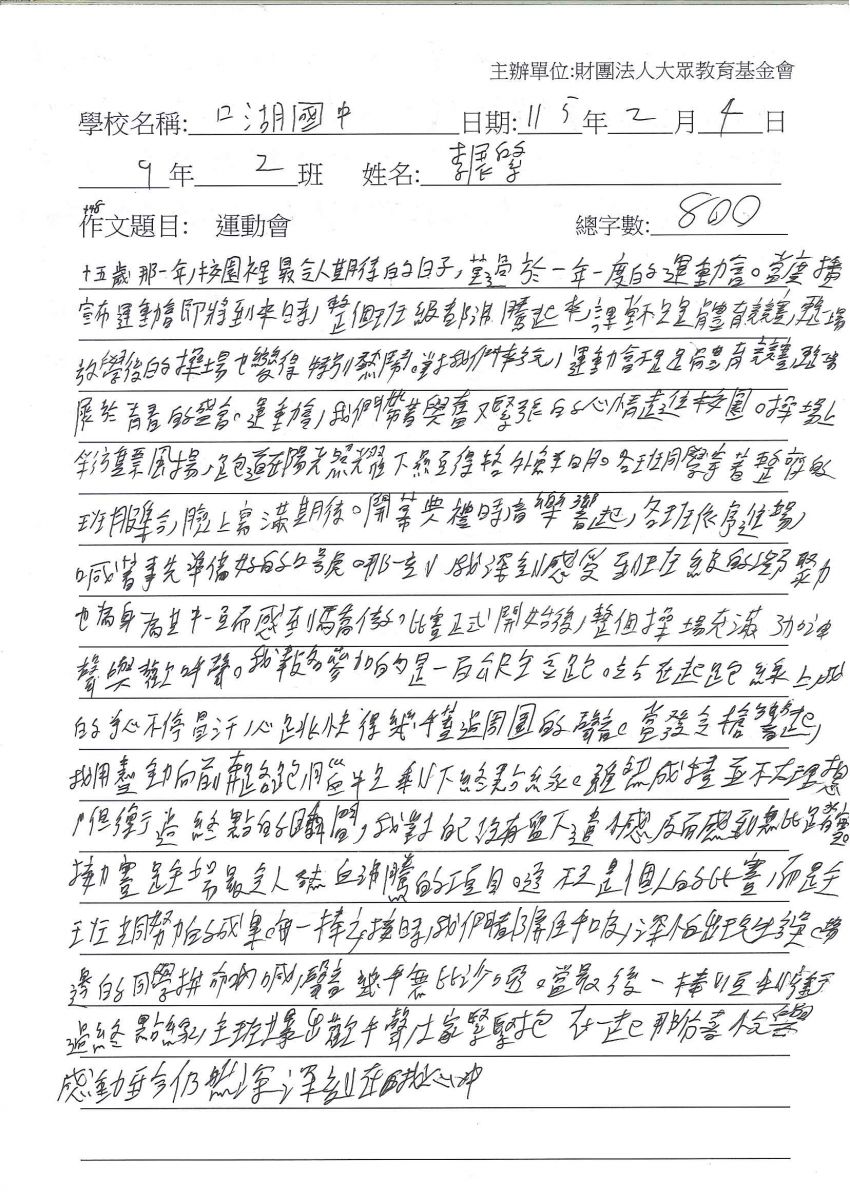 主辦單位:財團法人大眾教育基金會
學校名稱: 口湖國中 日期: 115 年 2 月 4 日
9 年 2 班 姓名: 李
作文題目: 運動會 總字數: 800
十五歲那一年,校園裡最令人期待的日子,莫過於一年一度的運動會。當廣播
宣布運動會即將到來時,整個班級都沸騰起來,課業不只是體育競賽,更一場
放學後的操場也變得特別熱鬧。對我們來說,運動會不只是體育競賽更一場
展於青春的盛會。運動會,我們帶著興奮又緊張的心情走進校園。操場上
彩旗飄揚,跑道在陽光照耀下顯得格外鮮明。各班同學穿著整齊的
班服集合,臉上寫滿期待。開幕典禮時,音樂響起,各班依序進場,
喊著事先準備好的口號。那一刻,我深刻感受到班級的凝聚力
也為身為其中一員而感到驕傲。比賽正式開始後,整個操場充滿加油
聲與歡呼聲。我報名參加的是一百公尺全力跑。站在起跑線上,我
的手心不停冒汗,心跳快得幾乎蓋過周圍的聲音。當發令槍響起,
我用盡 動向前 跑, 下終點線。雖然成績並不太理想
,但衝過終點的瞬間,我對自己沒有留下遺憾感,反而感到無比踏實。
接力賽是全場最令人熱血沸騰的項目。這不是個人的比賽,而是全
班共同努力的成果。每一棒交接時,我們都屏住呼吸,深怕出現失誤。場
邊的同學拚命吶喊,聲音幾乎無比沙啞。當最後一棒 衝
過終點線,全班爆出歡呼聲,大家緊緊抱在一起,那份喜悅與
感動至今仍然深深刻在我心中